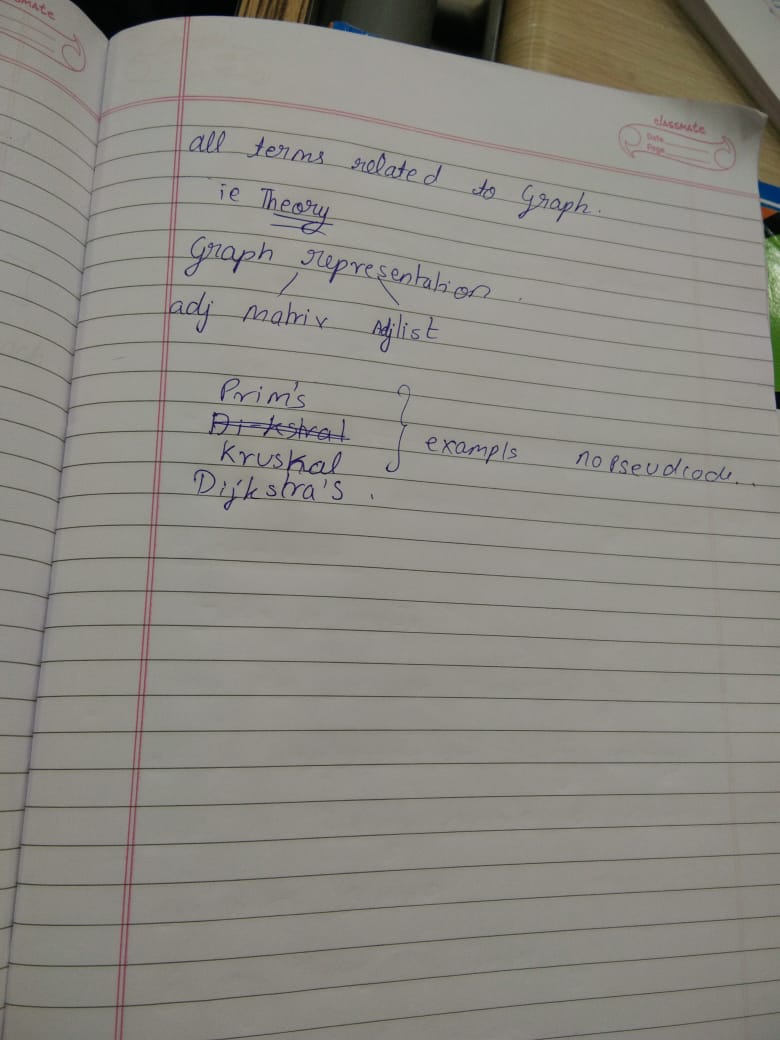 classmate
Date
Page
all terms related to Graph.
ie Theory
Graph representation.
adj matrix Adjlist
Prim's
Di-kstral
Kruskal } exampls no pseudcode..
Dijkstra's.